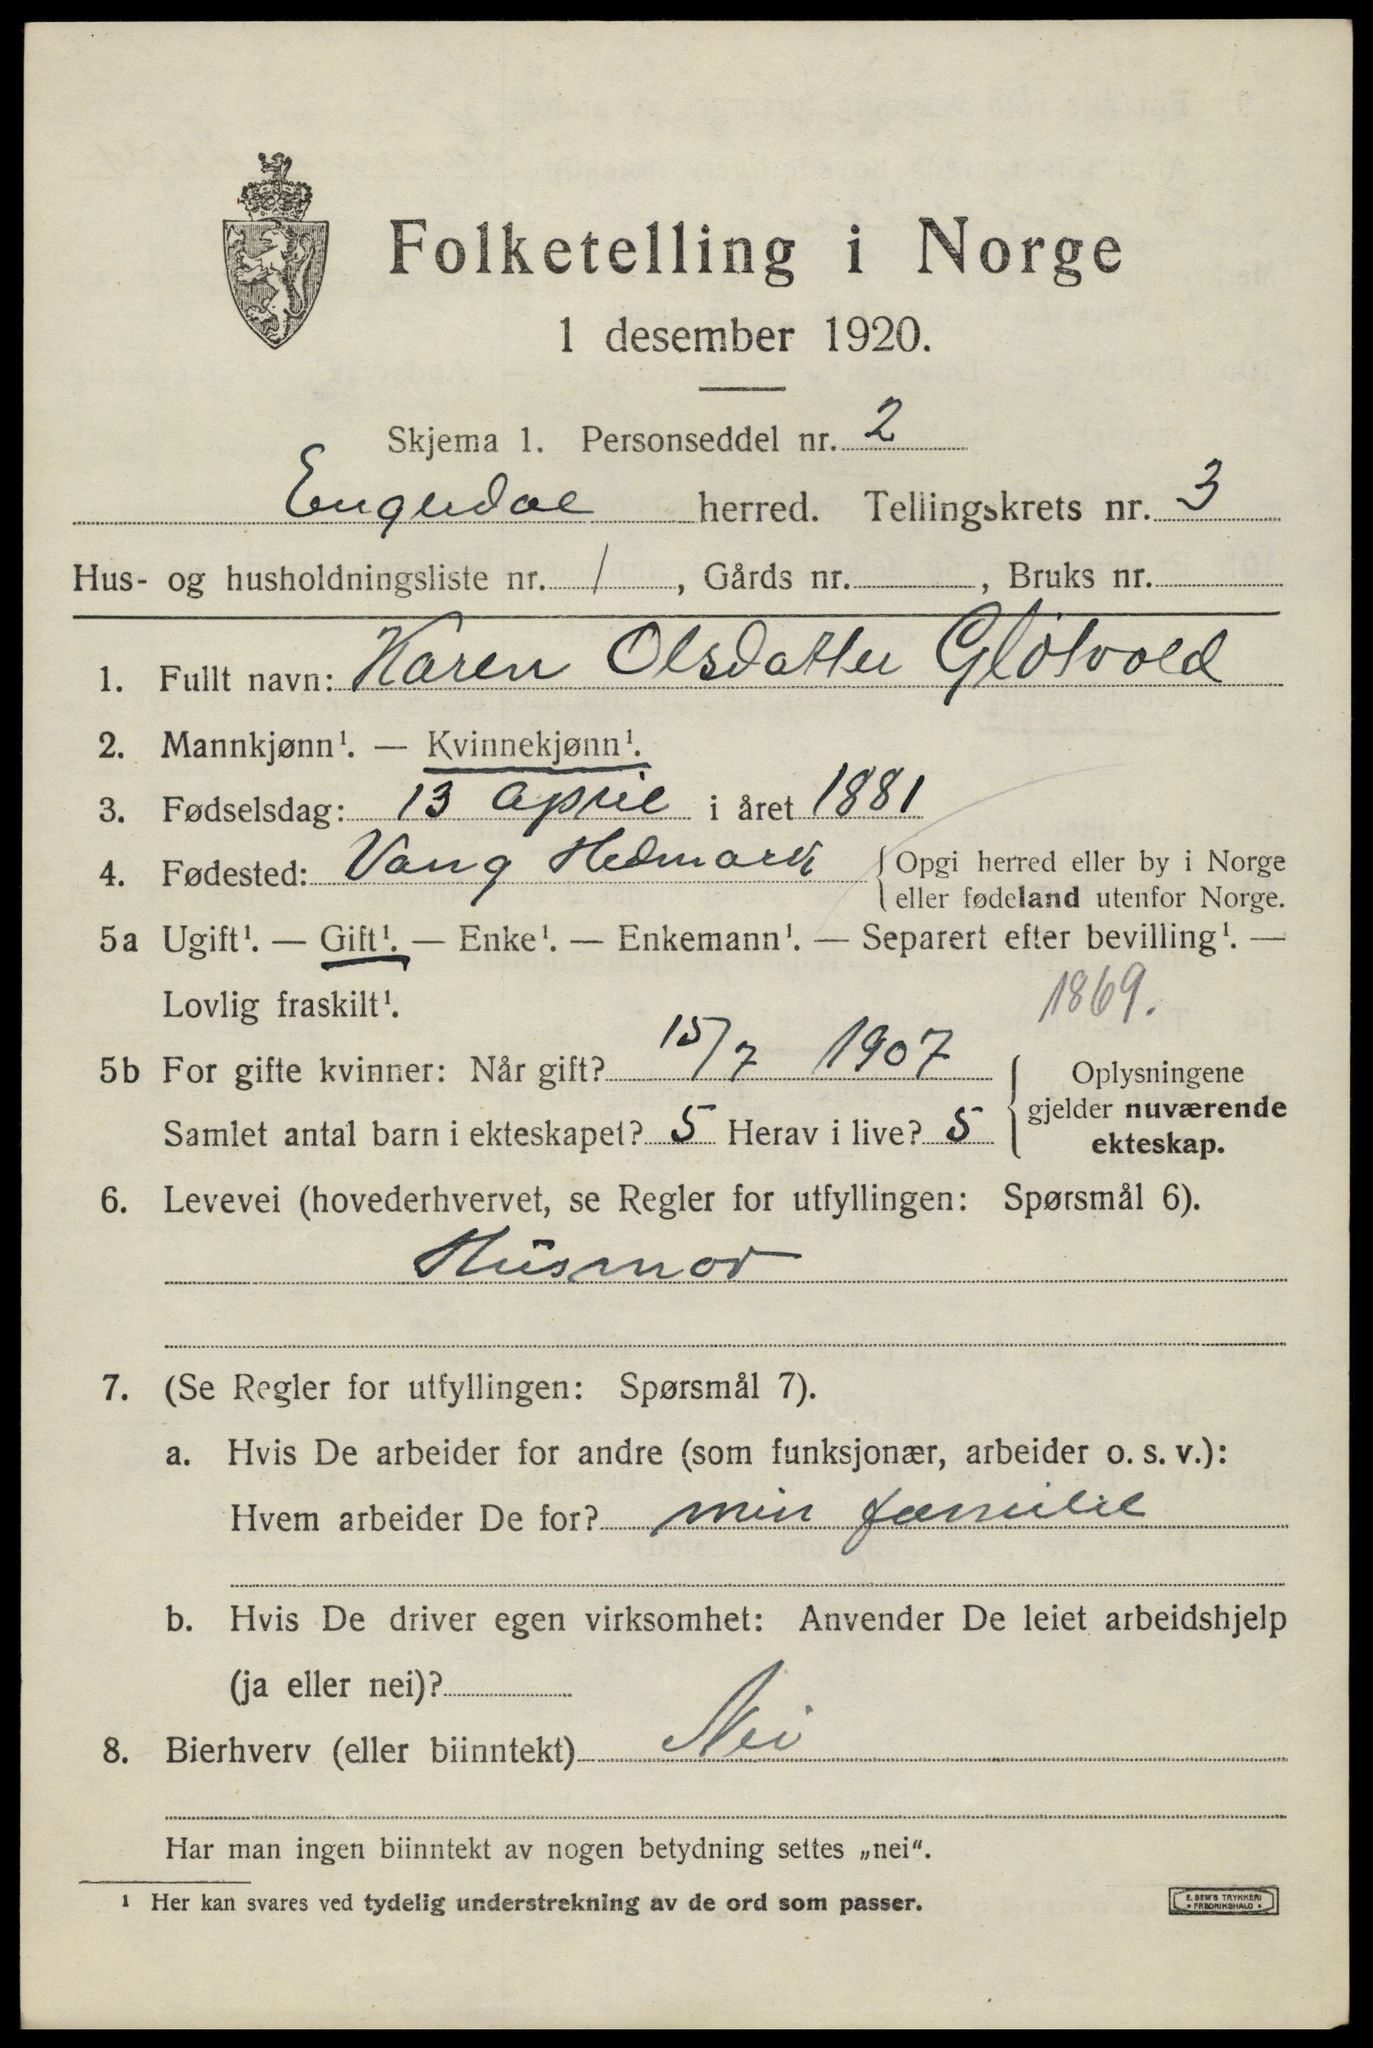 Folketelling i Norge
1 desember 1920.
Skjema 1. Personseddel nr. 2
Engerdal herred. Tellingskrets nr. 3
Hus- og husholdningsliste nr. 1, Gårds nr. , Bruks nr.
1. Fullt navn: Karen Olsdatter Gløtvold
2. Mannkjønn¹. — Kvinnekjønn¹.
3. Fødselsdag: 13 april i året 1881
4. Fødested: Vang Hedmark {Opgi herred eller by i Norge
eller fødeland utenfor Norge.
5a Ugift¹. — Gift¹. — Enke¹. — Enkemann¹. — Separert efter bevilling¹. —
Lovlig fraskilt¹. 1869.
5b For gifte kvinner: Når gift? 15/7 1907 Oplysningene
gjelder nuværende
Samlet antal barn i ekteskapet? 5 Herav i live? 5 ekteskap.
6. Levevei (hovederhvervet, se Regler for utfyllingen: Spørsmål 6).
Husmor
7. (Se Regler for utfyllingen: Spørsmål 7).
a. Hvis De arbeider for andre (som funksjonær, arbeider o. s. v.):
Hvem arbeider De for? min familie
b. Hvis De driver egen virksomhet: Anvender De leiet arbeidshjelp
(ja eller nei)?
8. Bierhverv (eller biinntekt) Nei
Har man ingen biinntekt av nogen betydning settes „nei“.
¹ Her kan svares ved tydelig understrekning av de ord som passer.
E. SEM'S TRYKKERI
• FREDRIKSHALD •